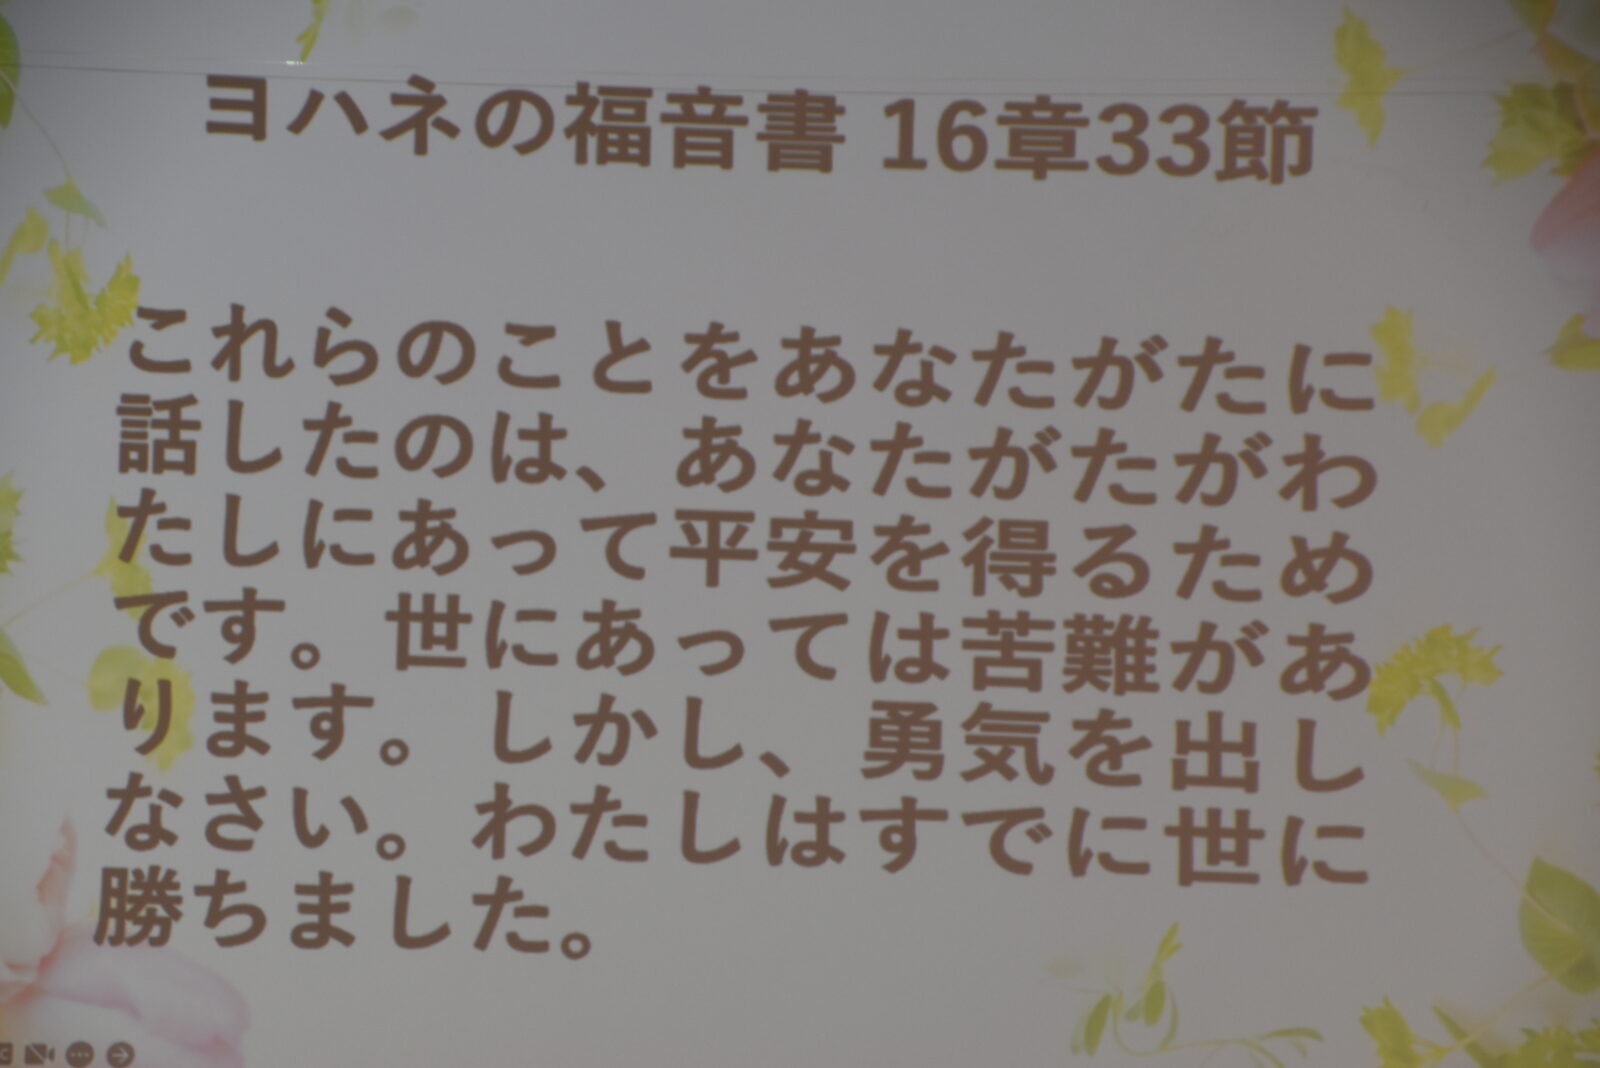 ヨハネの福音書 16章33節
これらのことをあなたがたに
話したのは、あなたがたがわ
たしにあって平安を得るため
です。世にあっては苦難があ
ります。しかし、勇気を出し
なさい。わたしはすでに世に
勝ちました。